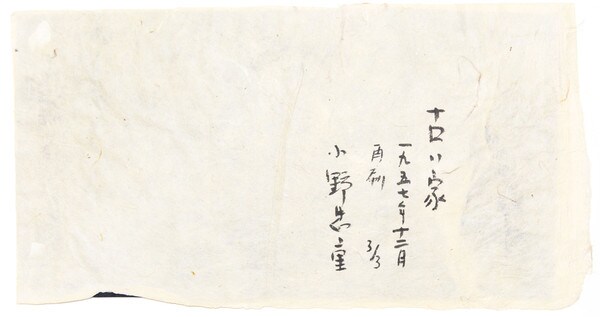 古い家
一九五七年十二月
再刷 3/3
小野忠重